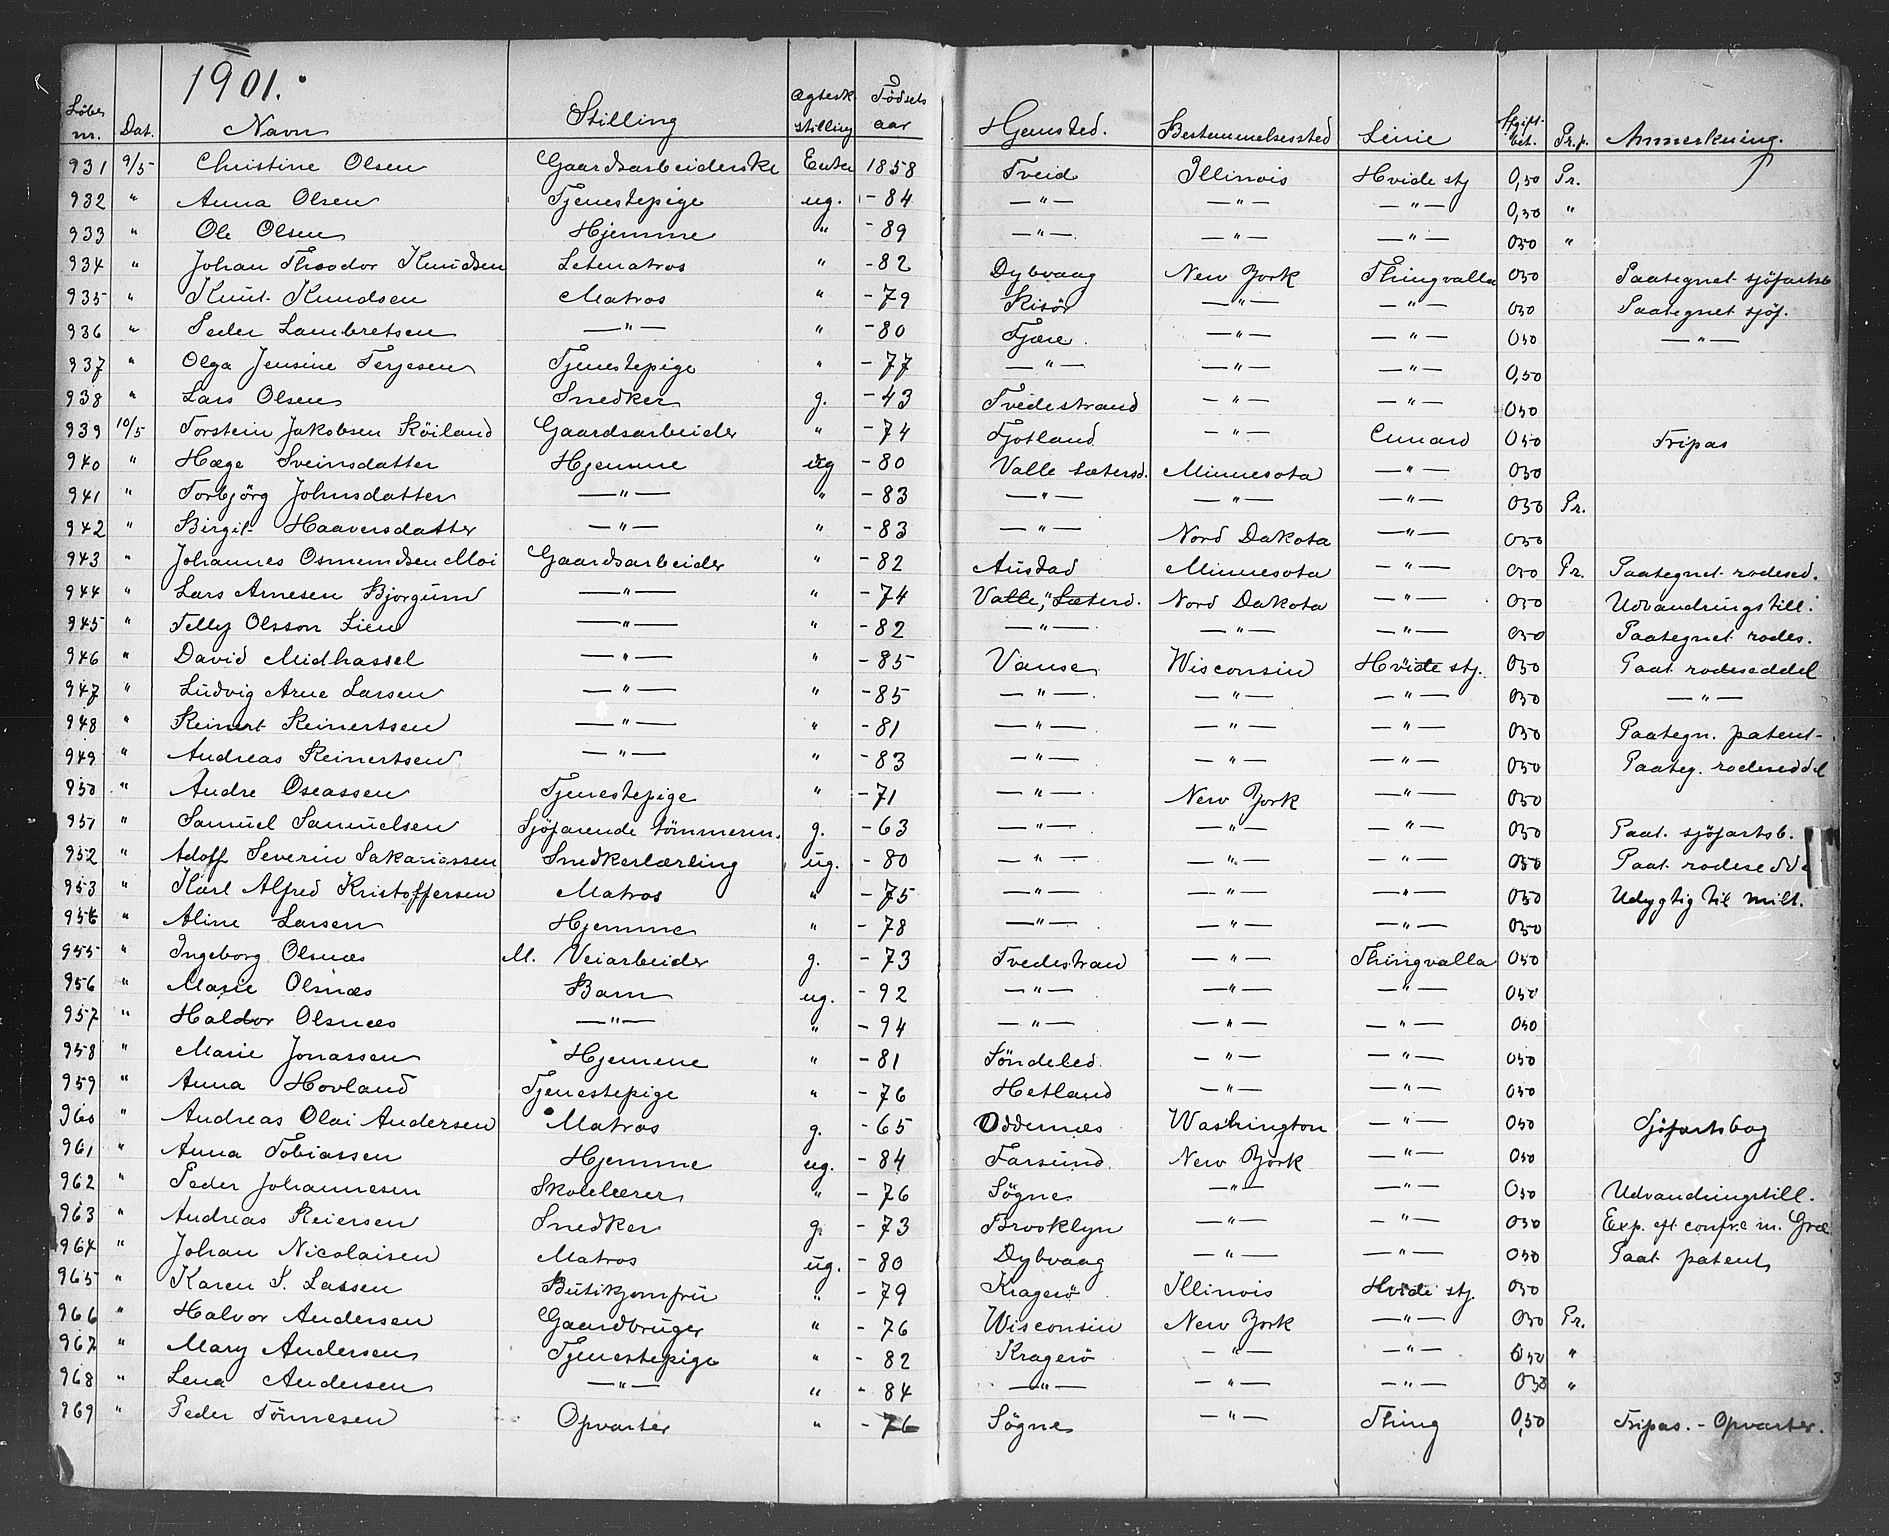 1901.
Løbenr. Dat. Navn Stilling Ægtesk. stilling Fødselsaar Hjemsted. Bestemmelsessted Linie Afgift. bet. Pr.p. Anmerkning.
931 9/5 Christine Olsen Gaardsarbeiderske Enke 1858 Tveid Illinois Hvide stj 0,50 Pr.
932 " Anna Olsen Tjenestepige ug. -84 —"— —"— —"— 0,50 "
933 " Ole Olsen Hjemme " -89 —"— —"— —"— 050 "
934 " Johan Theodor Knudsen Letmatros " -82 Dybvaag New York Thingvalla 050 Paategnet sjöfartsb
935 " Knut Knudsen Matros " -79 Risör —"— —"— 050 Paategnet sjöf.
936 " Peder Lambretsen —"— " -80 Fjære —"— —"— 050 —"—
937 " Olga Jensine Terjesen Tjenestepige " -77 —"— —"— —"— 0,50
938 " Lars Olsen Snedker g. -43 Tvedestrand —"— —"— 050
939 10/5 Torstein Jakobsen Röiland Gaardsarbeider " -74 Fjotland —"— Cunard 050 Fripas
940 " Hæge Sveinsdatter Hjemme ug -80 Valle Sætersd. Minnesota —"— 050
941 " Torbjörg Johnsdatter —"— " -83 —"— —"— —"— 050 Pr.
942 " Birgit Haaversdatter —"— " -83 —"— Nord Dakota —"— 050
943 " Johannes Osmundsen Moi Gaardsarbeider " -82 Austad Minnesota —"— 050 Pr. Paategnet rodesed.
944 " Lars Arnesen Bjorgum —"— " -74 Valle, Sætersd. Nord Dakota —"— 050 Udvandringstill.
945 " Felly Olsson Lien —"— " -82 —"— —"— —"— 050 Paategnet rodes.
946 " David Midhassel —"— " -85 Vanse Wisconsin Hvide stj. 050 Paat. rodeseddel
947 " Ludvig Arne Larsen —"— " -85 —"— —"— —"— 050 —"—
948 " Reinert Reinertsen —"— " -81 —"— —"— —"— 050 Paategn. patent-
949 " Andreas Reinertsen —"— " -83 —"— —"— —"— 050 Paateg. rodeseddel
950 " Andre Oseassen Tjenestepige " -71 —"— New York —"— 050
951 " Samuel Samuelsen Sjöfarende tömmerm. g. -63 —"— —"— —"— 050 Paat. sjöfartsb.
952 " Adolf Severin Sakariassen Snedkerlærling ug. -80 —"— —"— —"— 050 Paat. rodesedde
953 " Karl Alfred Kristoffersen Matros " -75 —"— —"— —"— 050 Udygtig til milt.
954 " Aline Larsen Hjemme " -78 —"— —"— —"— 050
955 " Ingeborg Olsnæs M. Veiarbeider g. -73 Tvedestran —"— Thingvalla 050
956 " Marie Olsnæs Barn ug. -92 —"— —"— —"— 050
957 " Haldor Olsnæs —"— " -94 —"— —"— —"— 050
958 " Marie Jonassen Hjemme " -81 Söndeled —"— —"— 050
959 " Anna Hovland Tjenestepige " -76 Hetland —"— —"— 050
960 " Andreas Olai Andersen Matros g. -65 Oddernæs Washington —"— 050 Sjöfartsbog
961 " Anna Tobiassen Hjemme ug. -84 Farsund New York —"— 050
962 " Peder Johannesen Skolelærer " -76 Sögne —"— —"— 050 Udvandringstill.
963 " Andreas Reiersen Snedker g. -73 Brooklyn —"— —"— 050 Exp. eft. m.
964 " Johan Nicolaisen Matros ug. -80 Dybvaag —"— —"— 050 Paat patent
965 " Karen S. Lassen Butikjomfru " -79 Kragerö Illinois Hvide stj. 050
966 " Halvor Andersen Gaardbruger " -76 Wisconsin New York —"— 050 Pr.
967 " Mary Andersen Tjenestepige " -82 Kragerö —"— —"— 050 "
968 " Lena Andersen —"— " -84 —"— —"— —"— 050 "
969 " Peder Tönnesen Opvarter " -76 Sögne —"— Thing 0,50 Fripas. - Opvarter.